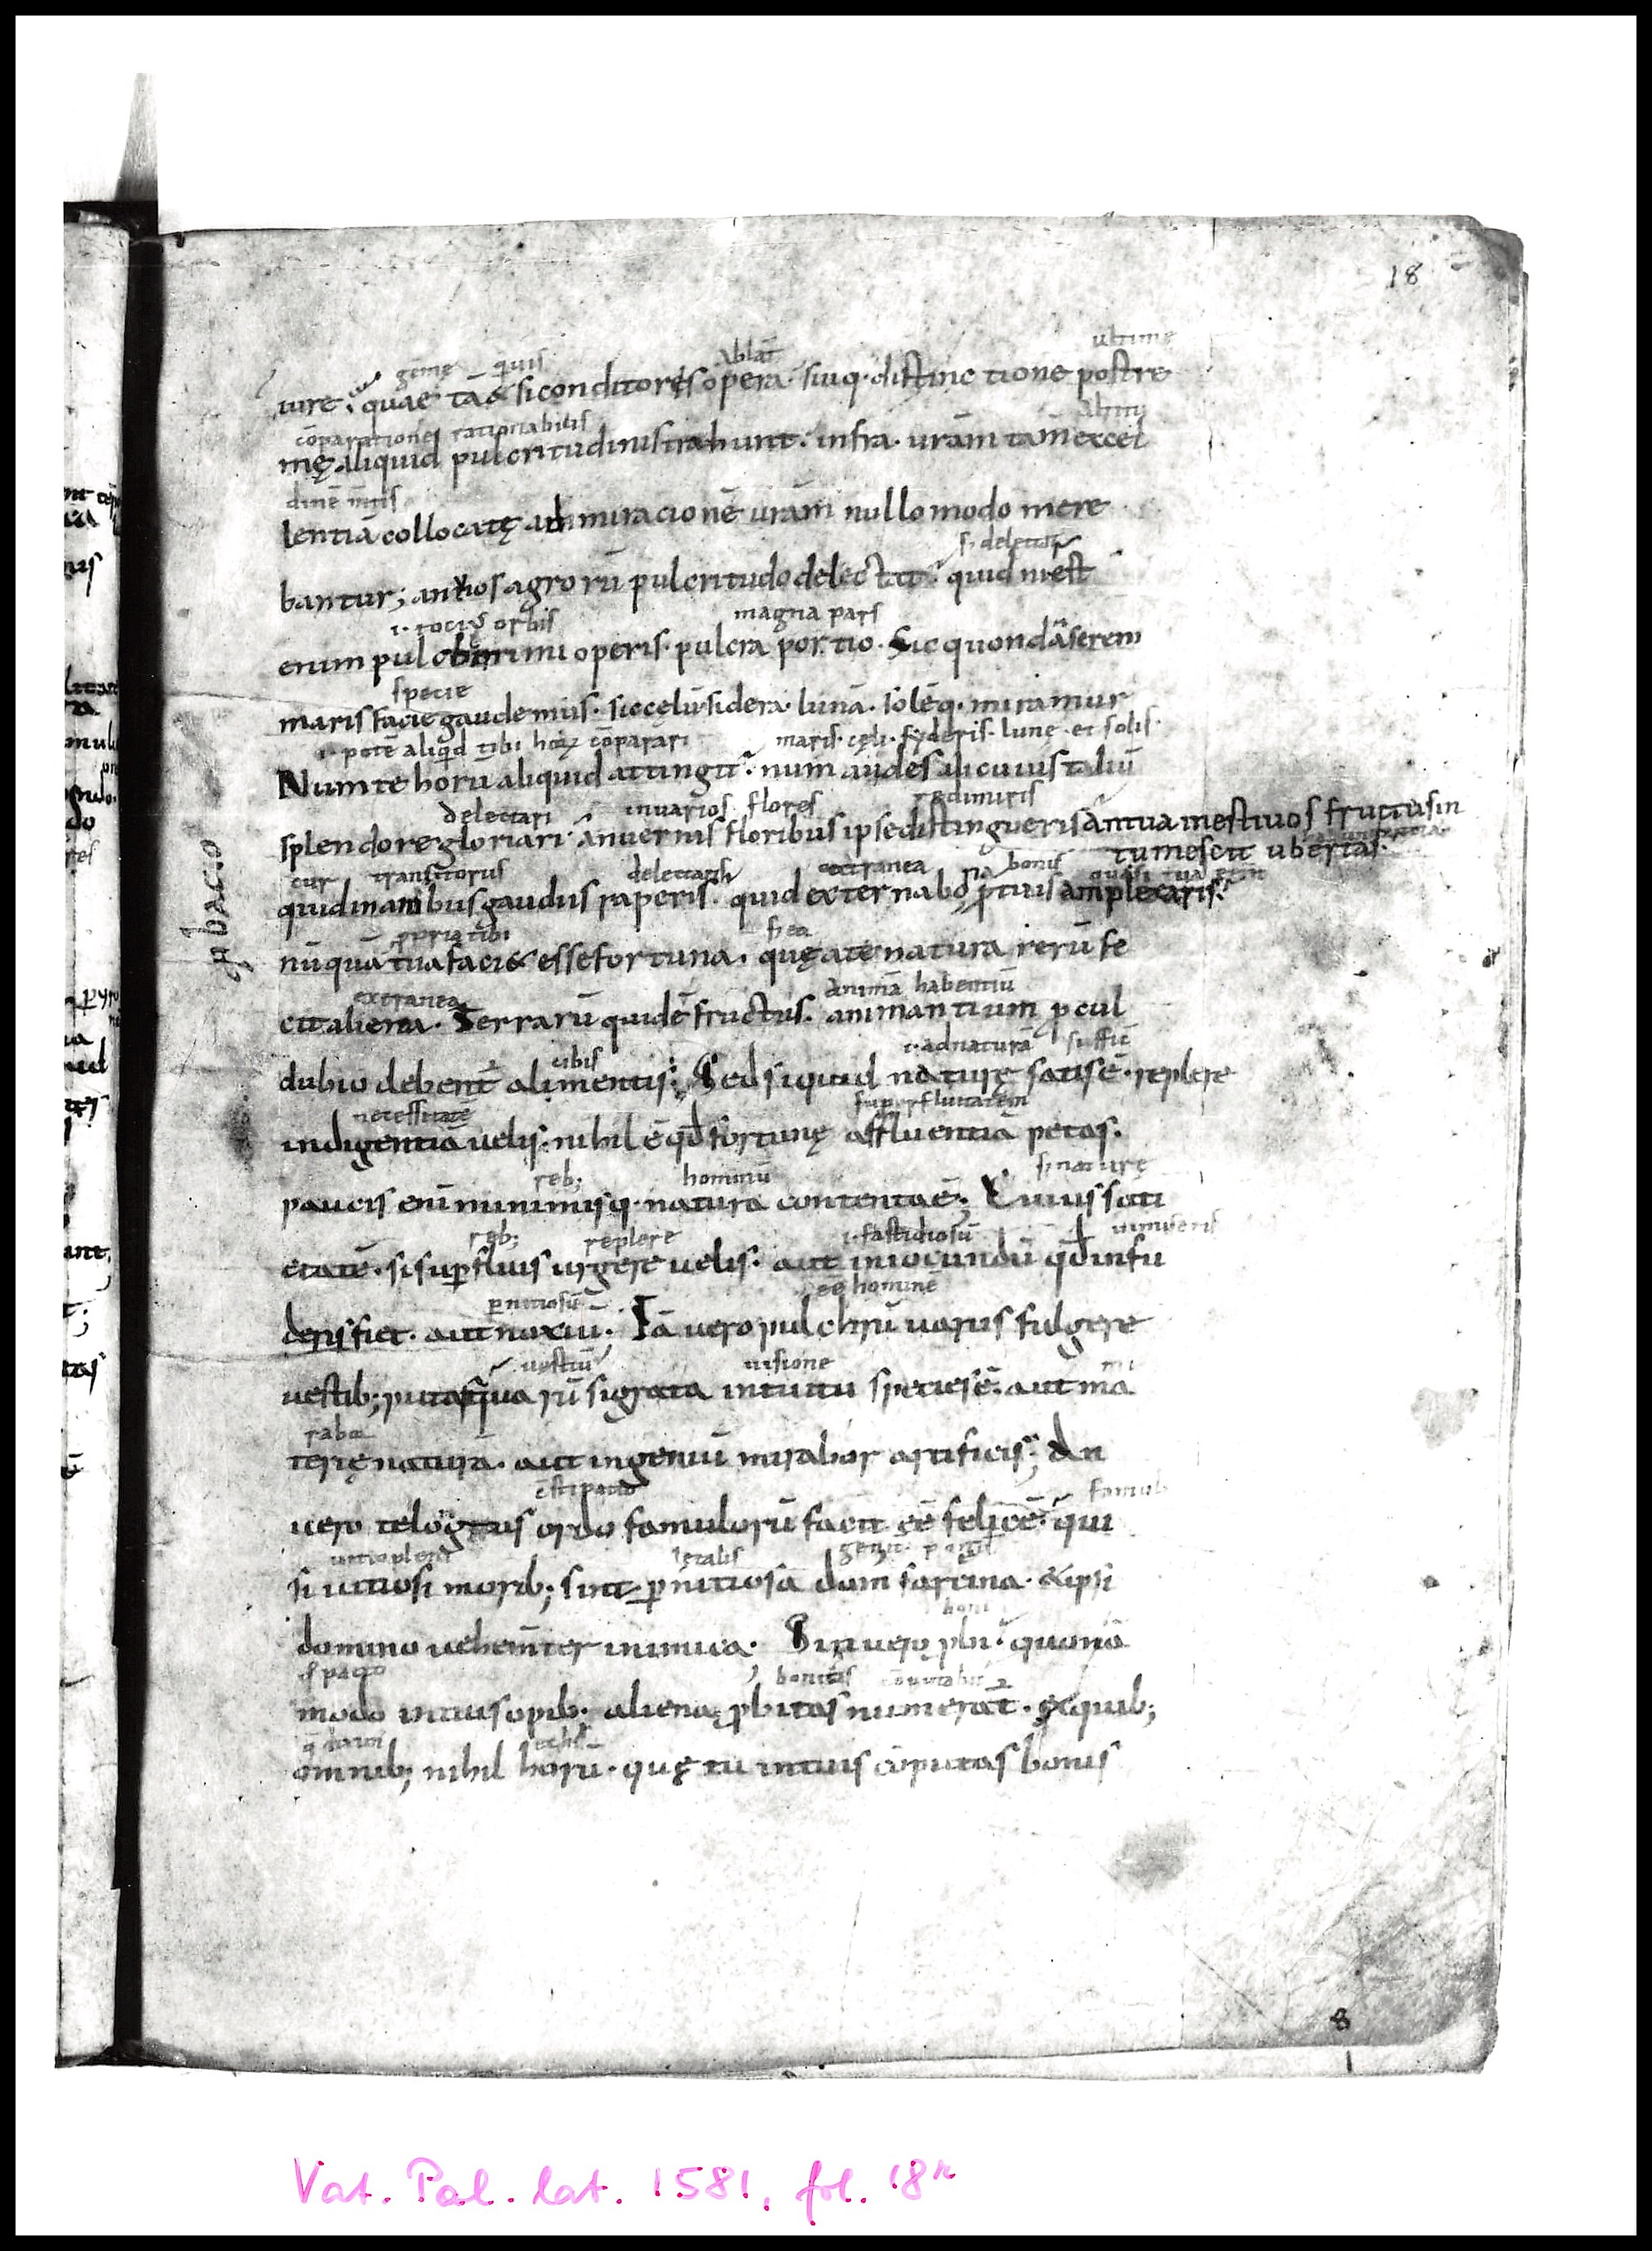 18
ultime
gēme quis Ablat̄
iure; quae tā& si conditoris opera suiq· distinctione postre
cōparatione rationabilis
mę aliquid pulcritudinis trahunt· infra· urām tam̄ excel
lentiā collocatę ad miracionē urām̄ nullo modo mere
s· delectat
bantur; an uos agrorū pulcritudo delectat quid ni est
i· tocius orbis magna pars
enim pulcherrimi operis· pulcra portio· Sic quondā sereni
specie
maris facie gaudemus· sic cęlū sidera· lunā· solēq· miramur
i· potē aliqid tibi hoꝝ cōparari maris· cęli· syderis· lunę et solis·
Num te horū aliquid attingit· num audes alicuius taliū
delectari in uarios flores redimiris
splendore gloriari· an uernis floribus ipse distingueris an tua in estiuos fructus in
tumescit ubertas·
cur transitorus delectatiſ extranea bonis
quid inanibus gaudiis raperis· quid externa bona ꝓ tuis amplexaris
abaco
ꝓpria tibi s· ea
nūquā tua faci& esse fortuna· quę a te natura rerū fe
extranea animā habentiū
cit aliena· Terrarū quidē fructus· animantium ꝓcul
cibis i· ad naturā suffic̄
dubio debent̄ alimentis; Sed si quid naturę satis ē· replere
necessitatē superfluitatem
indigentiā uelis· nihil ē qđ fortunę affluentiā petas·
reb; hominū s· naturę
paucis eni minimisq· natura contenta ē; Cuius sati
reb; replere i· fastidiosū inmiseris
etatē· si suꝑfluis urgere uelis· aut iniocundū qđ infu
ꝑnitiosū eē hominē
deris fiet· aut noxiū· Iā uero pulchrū uariis fulgere
uestiū uisione
uestib; putas quarū si grata intuitu species ē· aut ma
rabo
terię naturā· aut ingeniū mirabor artificis; An
uero te longus ordo famulorū facit eē felicē· qui
letalis
si uitiosi morib; sint ꝑnitiosa dom sarcina· & ipsi
boni
domino uehem̄ter inimica· Sin uero ꝓbi· quonā
pacto bonitas
modo in tuis opib; aliena ꝓbitas numerat̄· Ex quib;
omnib; nihil horū· quę tu in tuis cōputas bonis
8
Vat. Pal. lat. 1581, fol. 18r